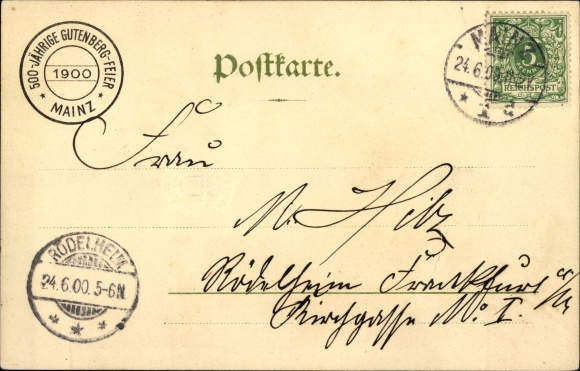 500-JÄHRIGE GUTENBERG-FEIER
1900
* MAINZ *
Postkarte.
MAINZ
24.6.00.
* 1
5
REICHSPOST
Frau
M. Hilz
Rödelheim Frankfurt a/M
Kirchgasse No. I.
RÖDELHEIM
24.6.00.5-6N.
* * *